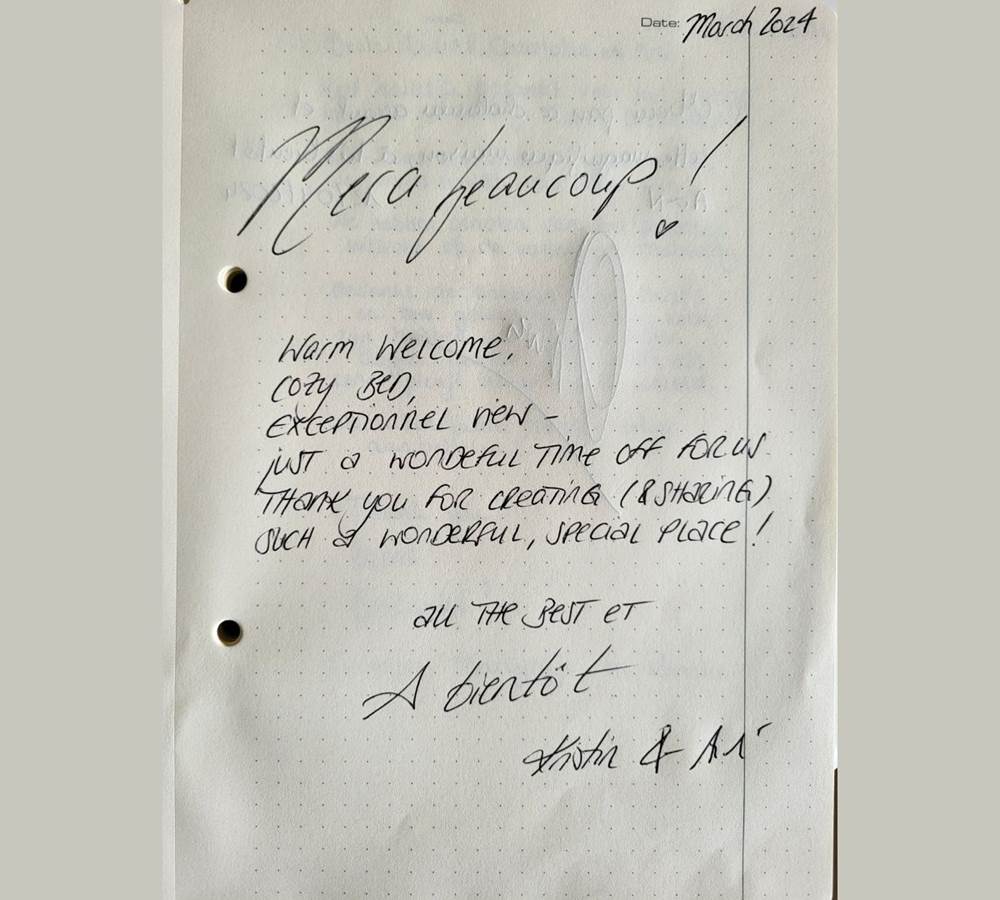 Date: March 2024
Merci beaucoup!
♡
Warm Welcome,
COZY BED,
EXCEPTIONNEL VIEW -
JUST a WONDEFUL TIME OFF FOR US
THANK you FOR CREATING (& SHARING)
SUCH a WONDERFUL, SPECIAL PLACE!
all THE BEST ET
A bientôt
Kristin &